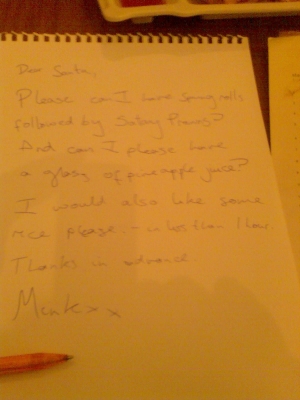 Dear Santa,
Please can I have Spring rolls
followed by Satay Prawns?
And can I please have
a glass of pineapple juice?
I would also like some
rice please - in less than 1 hour.
Thanks in advance.
xx